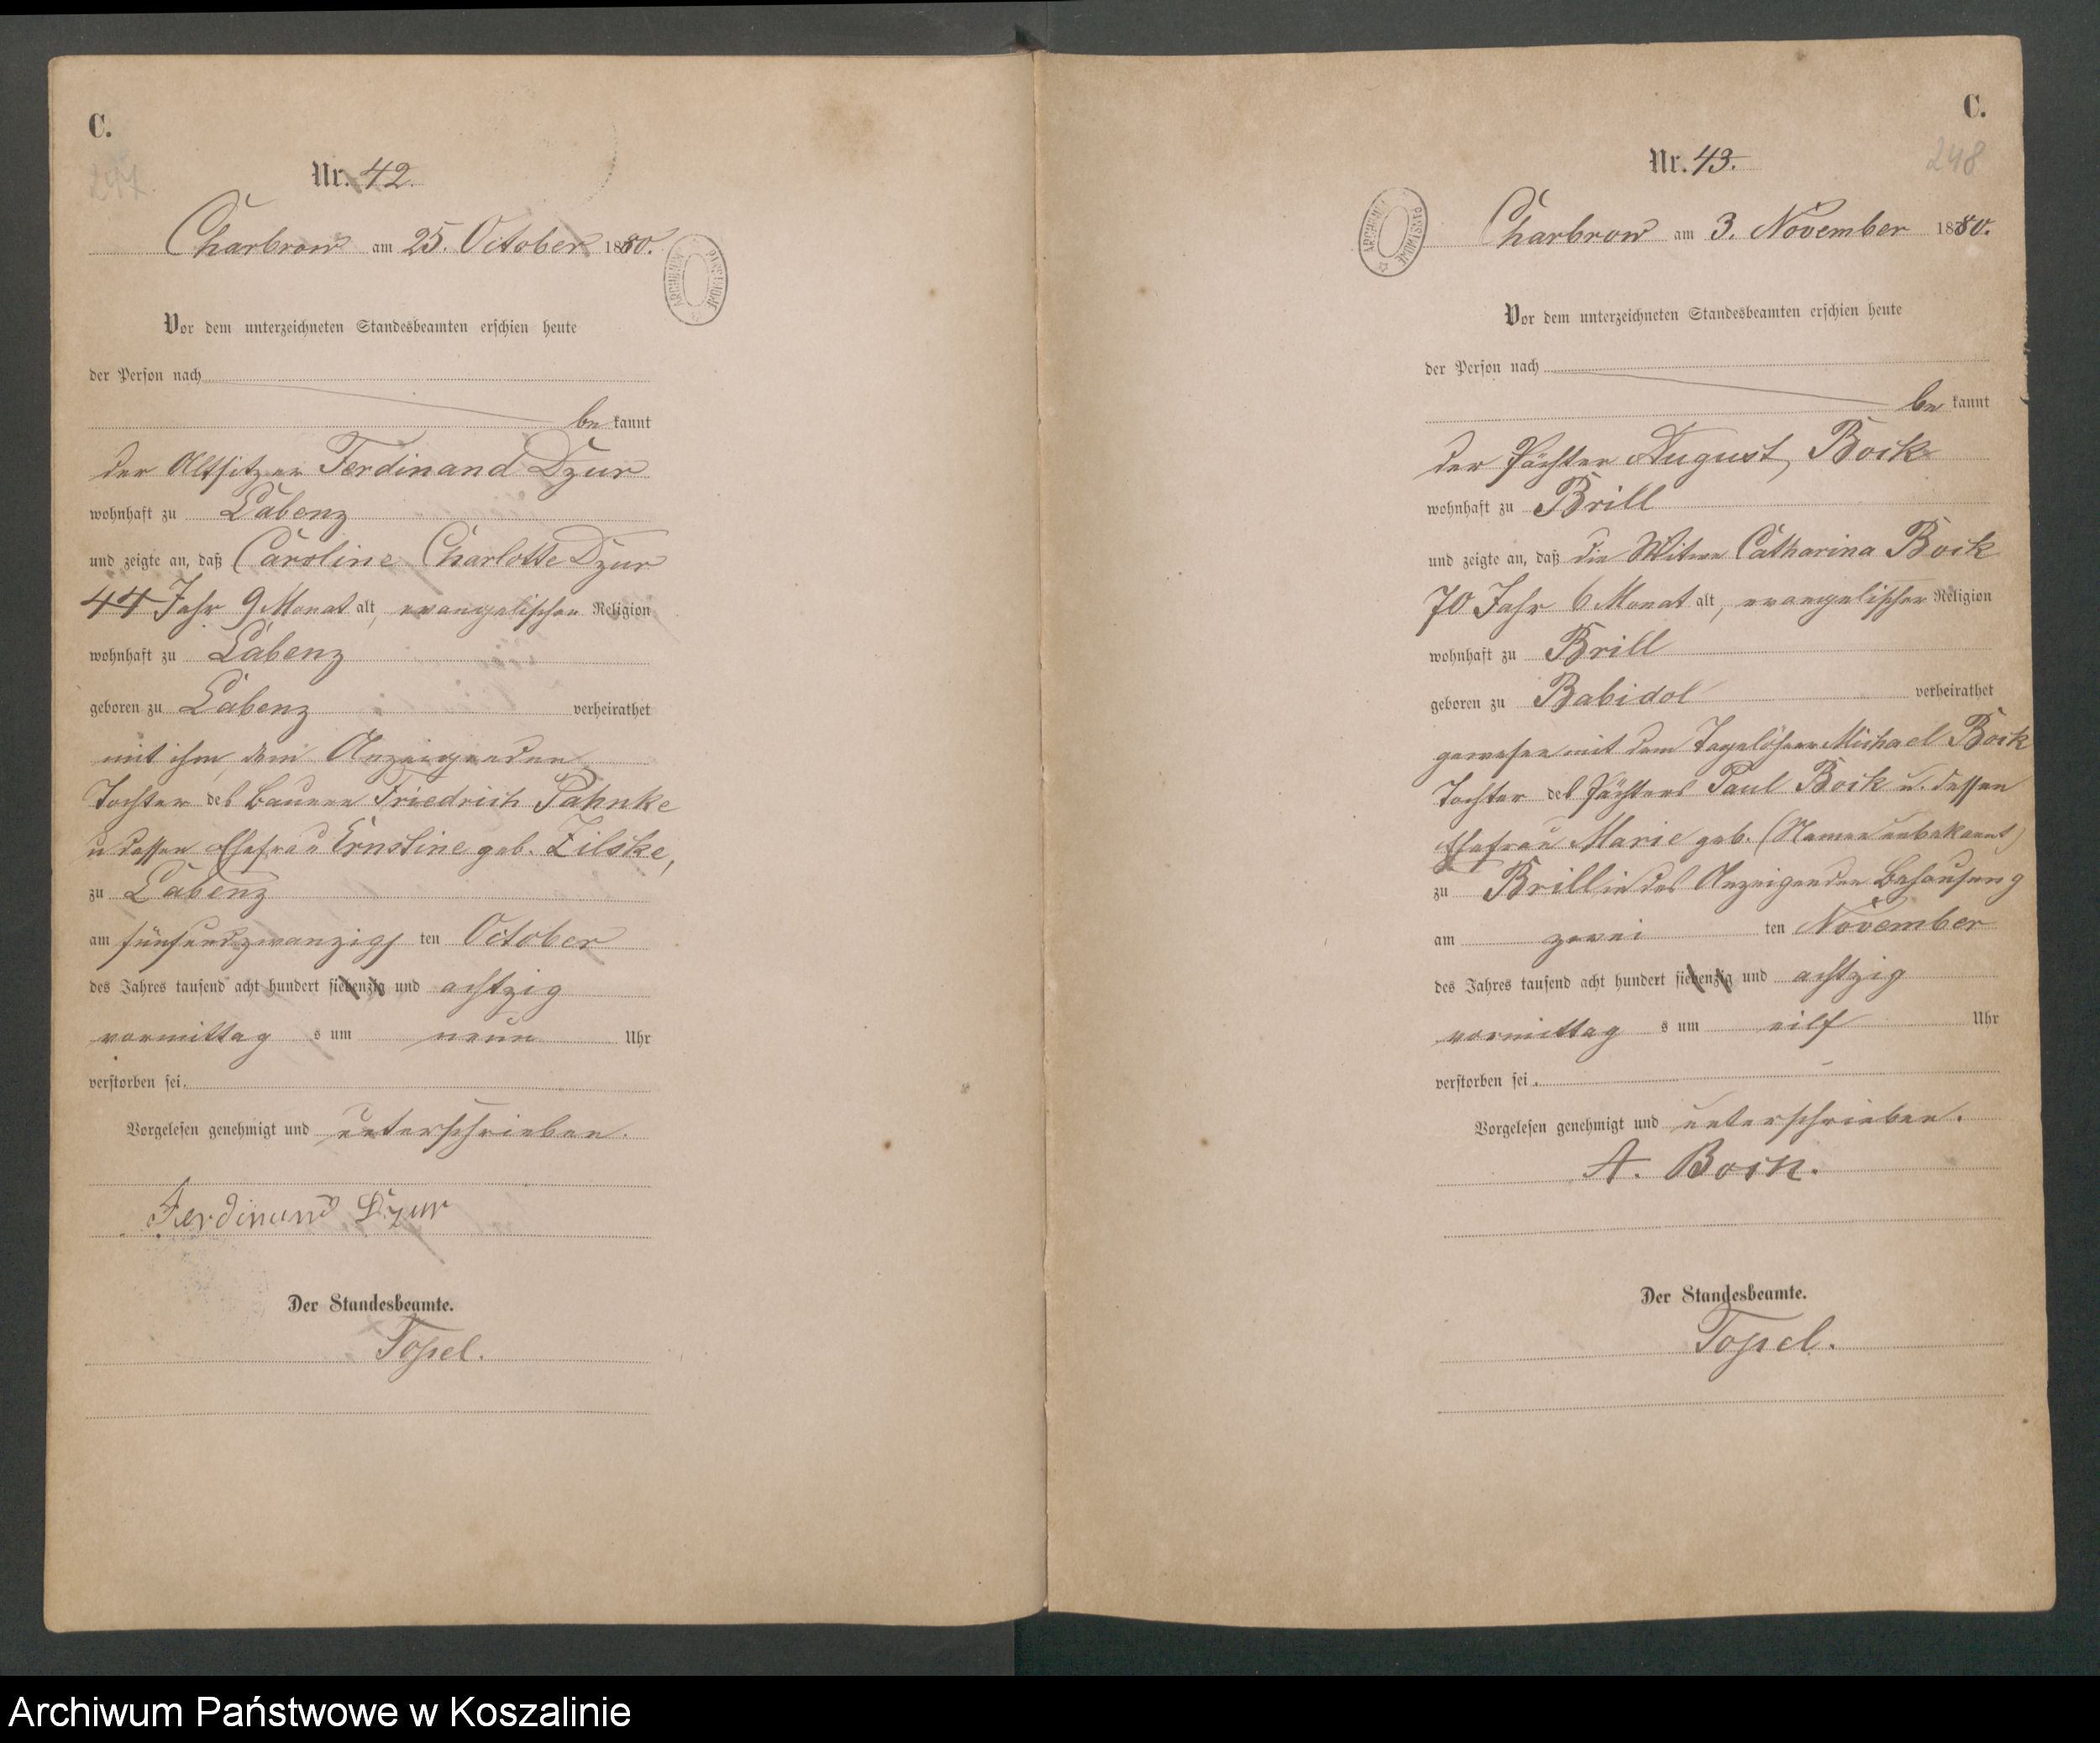 C.
247.
Nr. 42.
Charbrow am 25. October 1880.
ARCHIWUM PAŃSTWOWE
Vor dem unterzeichneten Standesbeamten erschien heute
der Person nach
be kannt
der Altsitzer Ferdinand Dzur
wohnhaft zu Labenz
und zeigte an, daß Caroline Charlotte Dzur
44 Jahr 9 Monat alt, evangelischer Religion
wohnhaft zu Labenz
geboren zu Labenz verheirathet
mit ihm, dem Anzeigenden
Tochter des Bauern Friedrich Pahnke
u. dessen Ehefrau Ernstine geb. Zilske,
zu Labenz
am fünfundzwanzigs ten October
des Jahres tausend acht hundert siebenzig und achtzig
vormittag s um neun Uhr
verstorben sei.
Vorgelesen genehmigt und unterschrieben.
Ferdinand Dzur
Der Standesbeamte.
Topel.
C.
248
Nr. 43.
Charbrow am 3. November 1880.
ARCHIWUM PAŃSTWOWE
Vor dem unterzeichneten Standesbeamten erschien heute
der Person nach
be kannt
der Pächter August Bock
wohnhaft zu Brill
und zeigte an, daß die Witwe Catharina Bock
70 Jahr 6 Monat alt, evangelischer Religion
wohnhaft zu Brill
geboren zu Babidol verheirathet
gewesen mit dem Tagelöhner Michael Bock
Tochter des Pächters Paul Bock u. dessen
Ehefrau Marie geb. (Namen unbekannt)
zu Brill in des Anzeigenden Behausung
am zwei ten November
des Jahres tausend acht hundert siebenzig und achtzig
vormittag s um eilf Uhr
verstorben sei.
Vorgelesen genehmigt und unterschrieben.
A. Bock.
Der Standesbeamte.
Topel.
Archiwum Państwowe w Koszalinie